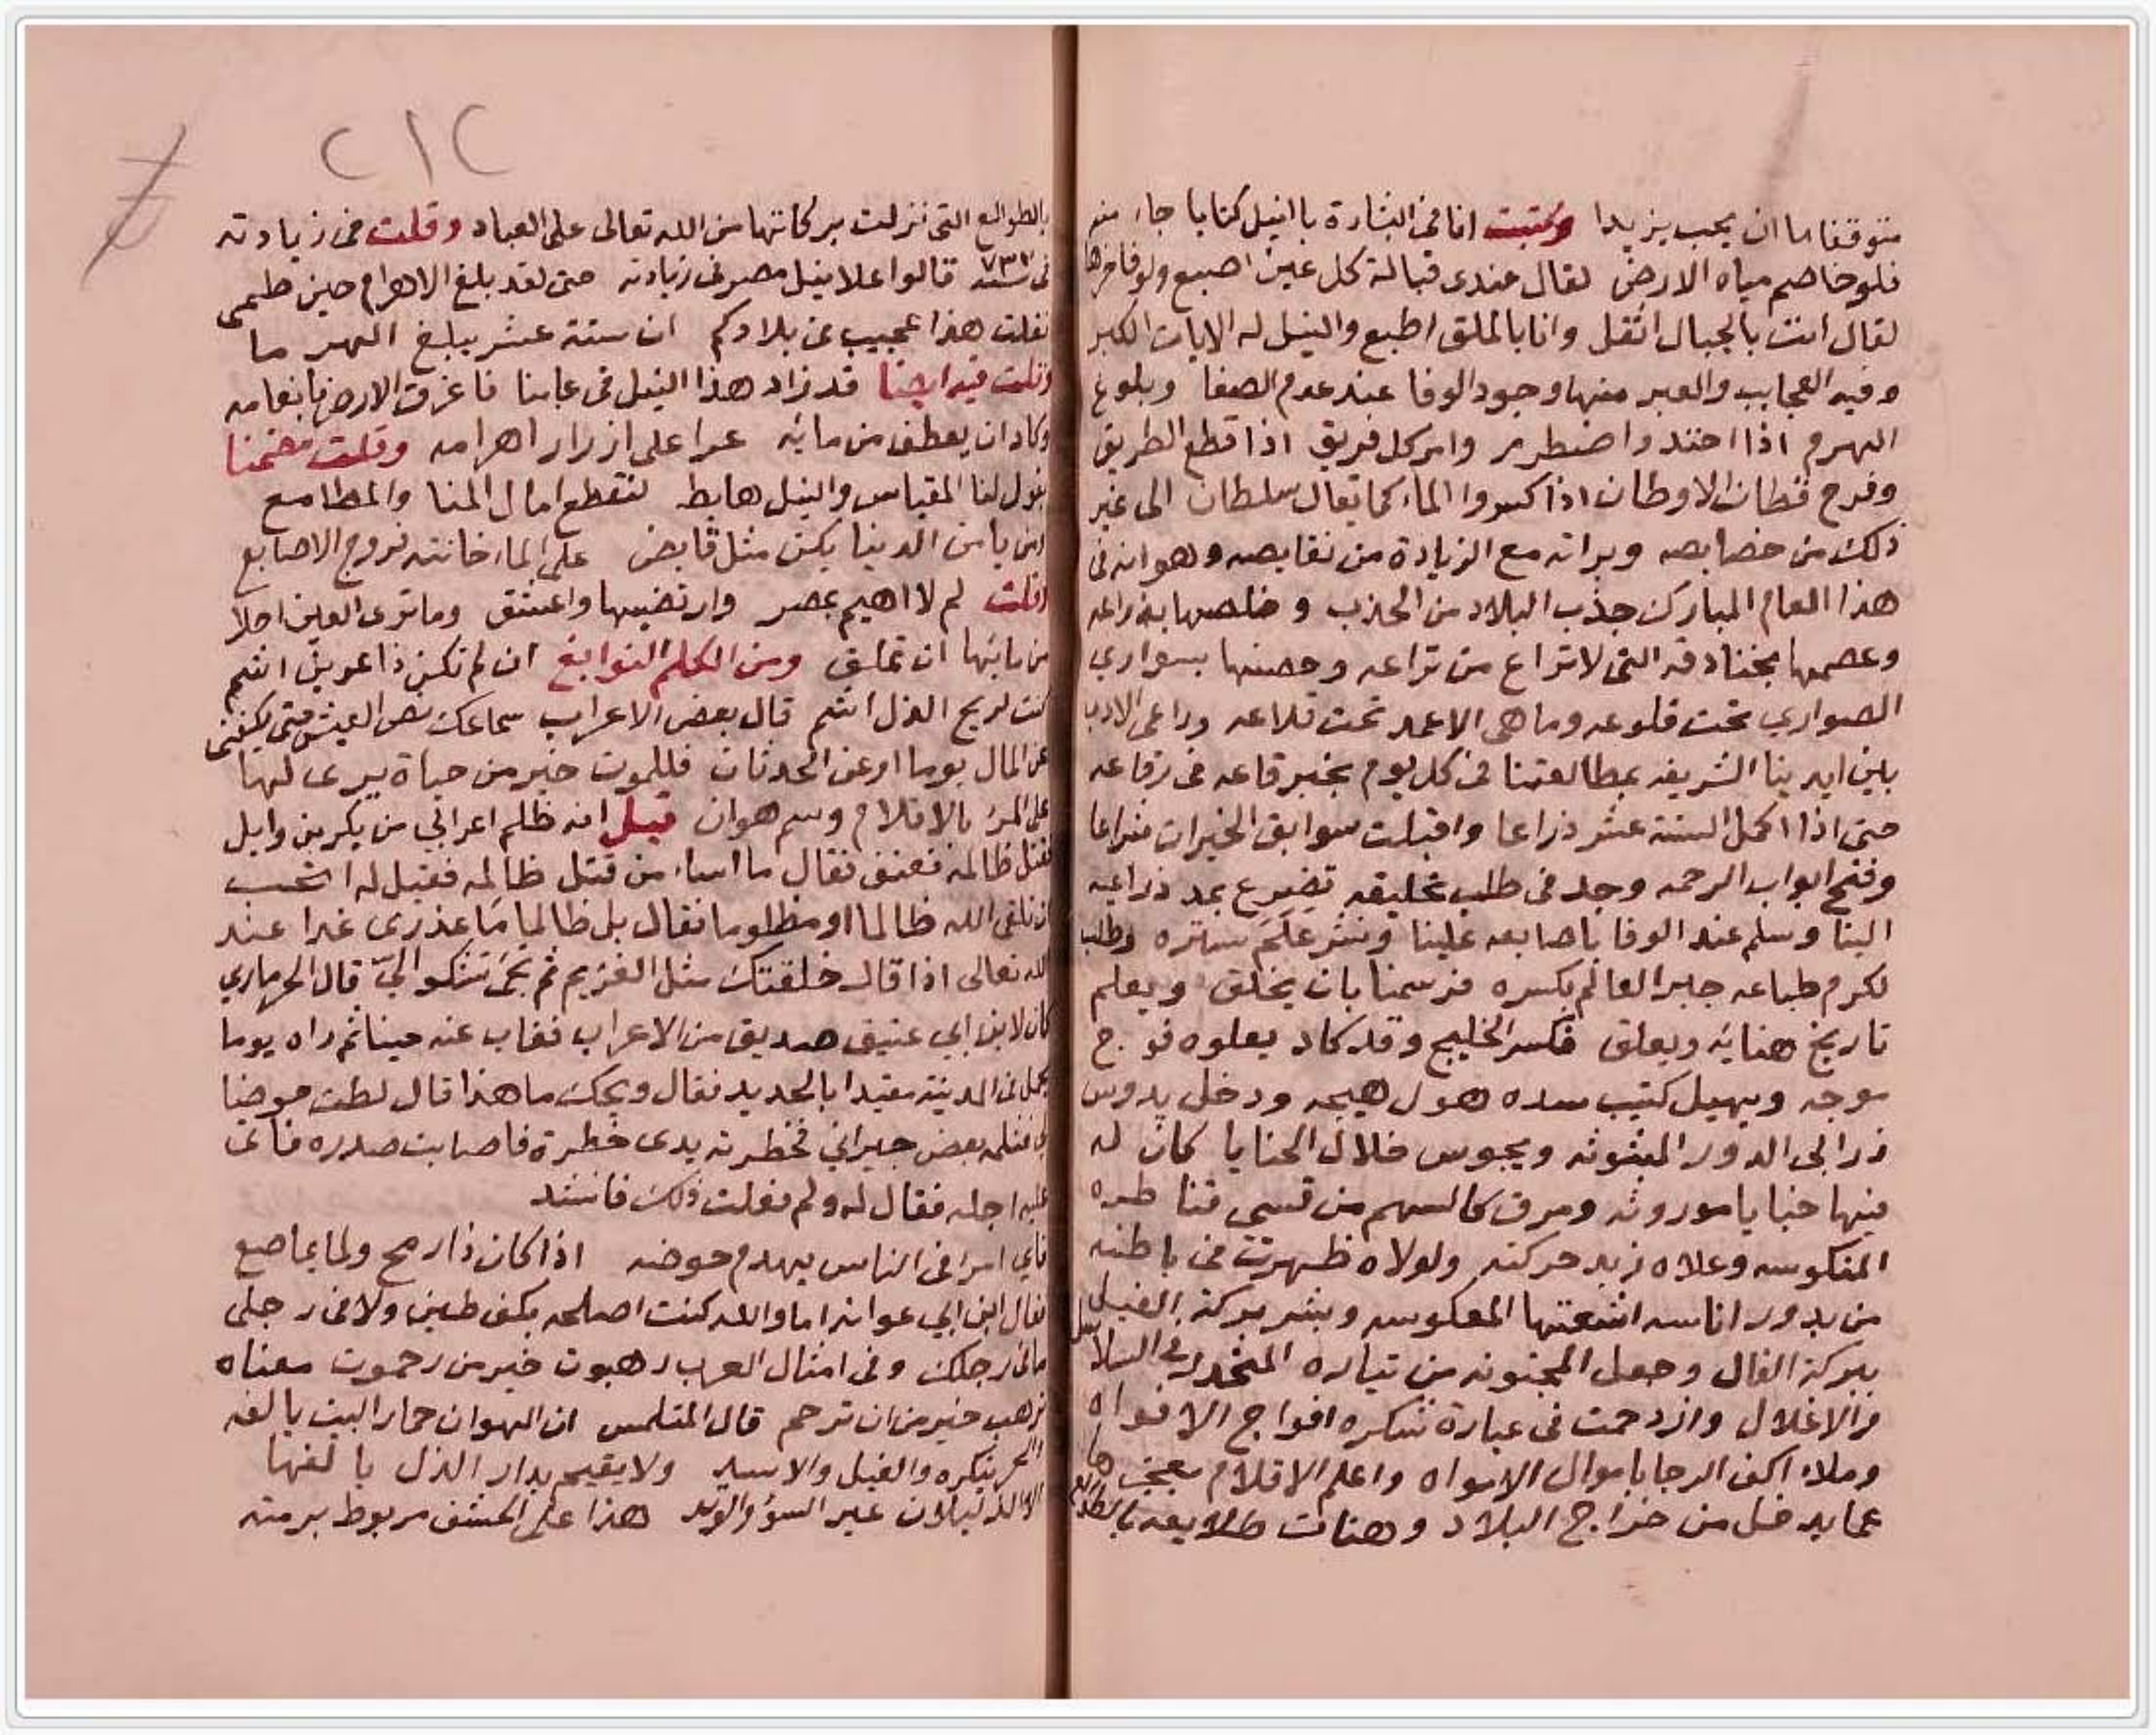 متوقفا ما ان يجب يزيدا وكتبت انا في البشارة بالنيل كتابا جاء منه
فلو خاصم مياه الارض لقال عندي قبالة كل عين اصبع ولو فاخرها
لقال انت بالجبال اثقل وانا بالملق اطبع والنيل له الايات الكبر
وفيه العجايب والعبر منها وجود الوفا عند عدم الصفا وبلوغ
الهرم اذا احتد واضطرم وامر كل فريق اذا قطع الطريق
وفرح قطان الاوطان اذا كسروا الماء كما يقال سلطان الى غير
ذلك من خصايصه وبراته مع الزيادة من نقايصه وهو انه في
هذا العام المبارك جذب البلاد من الجدب و خلصها بذراعه
وعصمها بخنادقه التي لا تراع من تراعه وحصنها بسواري
الصواري تحت قلوعه وما هي الا عمد تحت قلاعه وراعى الادب
بين ايدينا الشريفه بمطالعتنا في كل يوم بخبر قاعه في رقاعه
حتى اذا اكمل الستة عشر ذراعا واقبلت سوابق الخيرات شراعا
وفتح ابواب الرحمه وجد في طلب تخليقه تضرع بمد ذراعيه
الينا وسلم عند الوفا باصابعه علينا ونشر علم ستره وطلب
لكرم طباعه جبر العالم بكسره فرسمنا بان يخلق ويعلم
تاريخ هنايه ويعلق فكسر الخليج وقد كاد يعلوه فوج
موجه ويهيل كثيب سده هول هيجه ودخل يدوس
زرابي الدور المبثوثه ويجوس خلال الحنايا كان له
فيها خبايا موروثه ومرق كالسهم من قسي قناطره
المنكوسه وعلاه زبد حركته ولولاه ظهرت في باطنه
من بدور اناسه اشعتها المعكوسه وبشر بركة الفيل
ببركة الفال وجعل المجنونه من تياره المتحدر في السلاسل
والاغلال وازدحمت في عبارة شكره افواج الافواه
وملاء اكف الرجا باموال الامواه واعلم الاقلام بعجزها
عما يدخل من خراج البلاد وهنات طلايعه بالطوالع
٢١٢
بالطوالع التي نزلت بركاتها من الله تعالى على العباد وقلت في زيادته
في سنة ٧٣٧ قالوا علا نيل مصر في زيادته حتى لقد بلغ الاهرام حين طمى
فقلت هذا عجيب في بلادكم ان ستة عشر يبلغ الهرما
وقلت فيه ايضا قد زاد هذا النيل في عامنا فاغرق الارض بانعامه
وكاد ان يعطف من مايه عرا على ازرار اهرامه وقلت مضمنا
يقول لنا المقياس والنيل هابط لتقطع امال المنا والمطامع
ومن يامن الدنيا يكن مثل قابض على الماء خانته فروج الاصابع
وقلت لم لا اهيم بمصر وارتضيها واعشق وما ترى العين احلا
من مايها ان تملق ومن الكلم النوابغ ان لم تكن ذا عرين اشم
كنت لريح الذل اشم قال بعض الاعراب سماعك نص العيش حتى يكفني
عن المال يوما او عن الحدثان فللموت خير من حياة يرى لها
على المرء بالاقلام وسم هوان قيل انه ظلم اعرابي من بكر بن وايل
فقتل ظالمه فعنف فقال ما اساء من قتل ظالمه فقيل له اتحب
ان تلقى الله ظالما او مظلوما فقال بل ظالما ما عذري غدا عند
الله تعالى اذا قال خلقتك مثل الفريم ثم تجي تشكو الي قال الحرمازي
كان لابن ابي عتيق صديق من الاعراب فغاب عنه حينا ثم راه يوما
يحمل الى المدينة مقيدا بالحديد فقال ويحك ما هذا قال لطت حوضا
لي فثلمه بعض جيراني فخطرت يدي خطرة فاصابت صدره فاتى
عليه اجله فقال له ولم فعلت ذلك فانشد
فاي امرا في الناس يهدم حوضه اذا كان ذا رمح ولما يماصع
فقال ابن ابي عوانه اما والله كنت اصلحه بكف طين ولا في رجلي
ما في رجلك وفي امثال العرب رهبوت خير من رحموت معناه
ترهب خير من ان ترحم قال المتلمس ان الهوان حمار البيت يالفه
والحر ينكره والفيل والاسد ولا يقيم بدار الذل يالفها
الا الذليلان عير السوء والوتد هذا على الخسف مربوط برمته